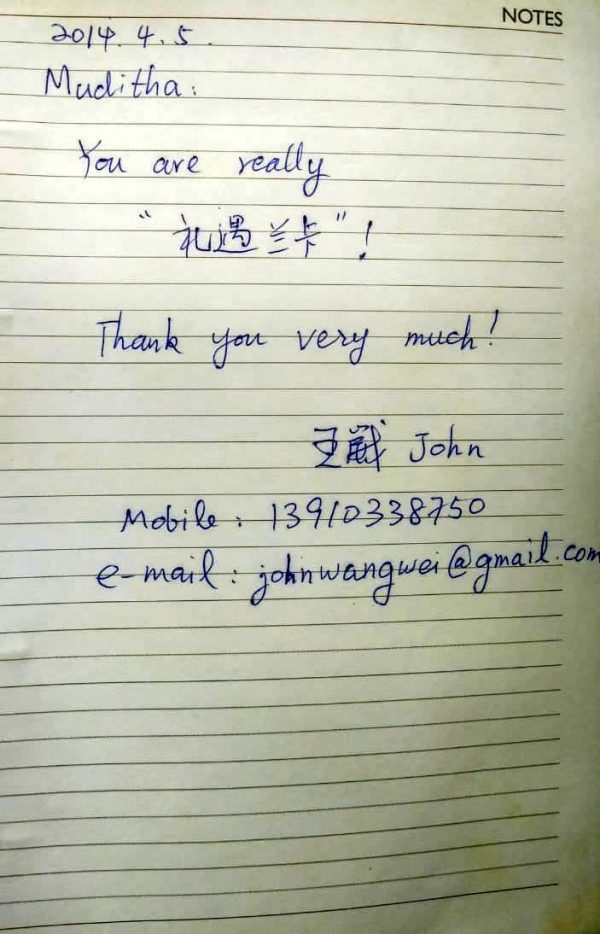 NOTES
2014.4.5.
Muditha:
You are really
"礼遇兰卡"!
Thank you very much!
王 John
Mobile: 13910338750
e-mail: johnwangwei@gmail.com